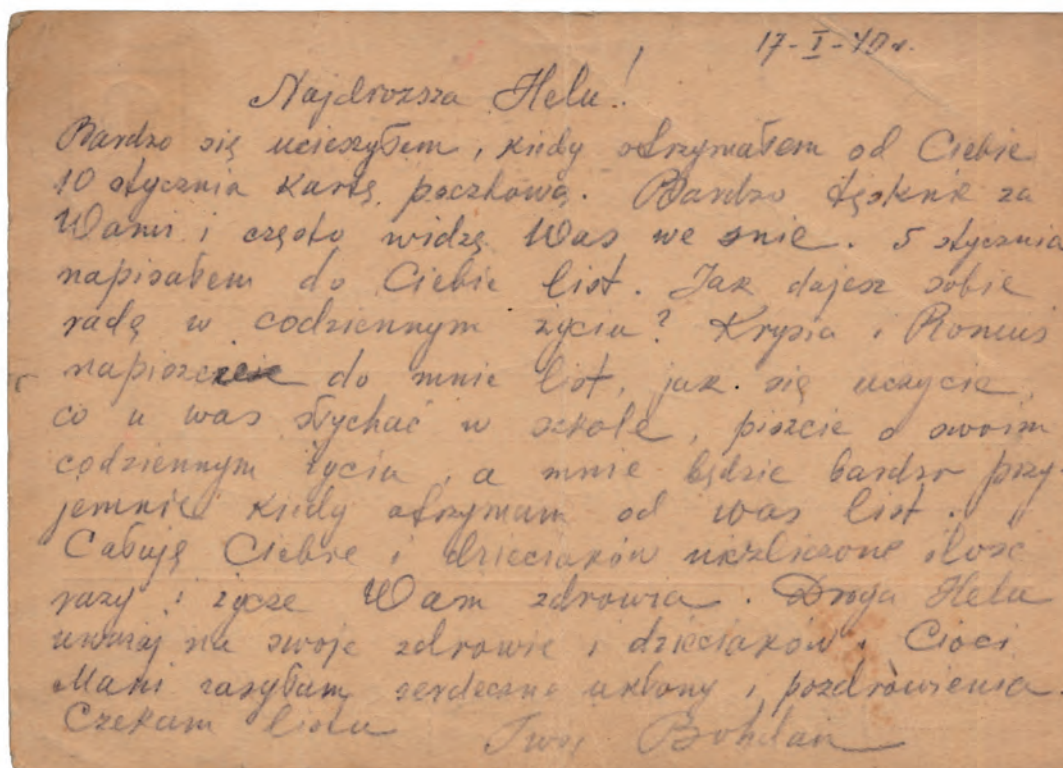 17-I-40 r.
Najdrozsza Helu!
Bardzo się ucieszyłem, kiedy otrzymałem od Ciebie
10 stycznia kartę pocztową. Bardzo tęsknię za
Wami i często widzę Was we śnie. 5 stycznia
napisałem do Ciebie list. Jak dajesz sobie
radę w codziennym życiu? Krysia i Romuś
napiszcie do mnie list, jak się uczycie,
co u was słychać w szkole, piszcie o swoim
codziennym życiu, a mnie będzie bardzo przy
jemnie kiedy otrzymam od was list.
Całuję Ciebie i dzieciaków niezliczone ilość
razy i życzę Wam zdrowia. Droga Helu
uważaj na swoje zdrowie i dzieciaków. Cioci
Mani zasyłam serdeczne ukłony i pozdrowienia.
Czekam listu Twój Bohdan